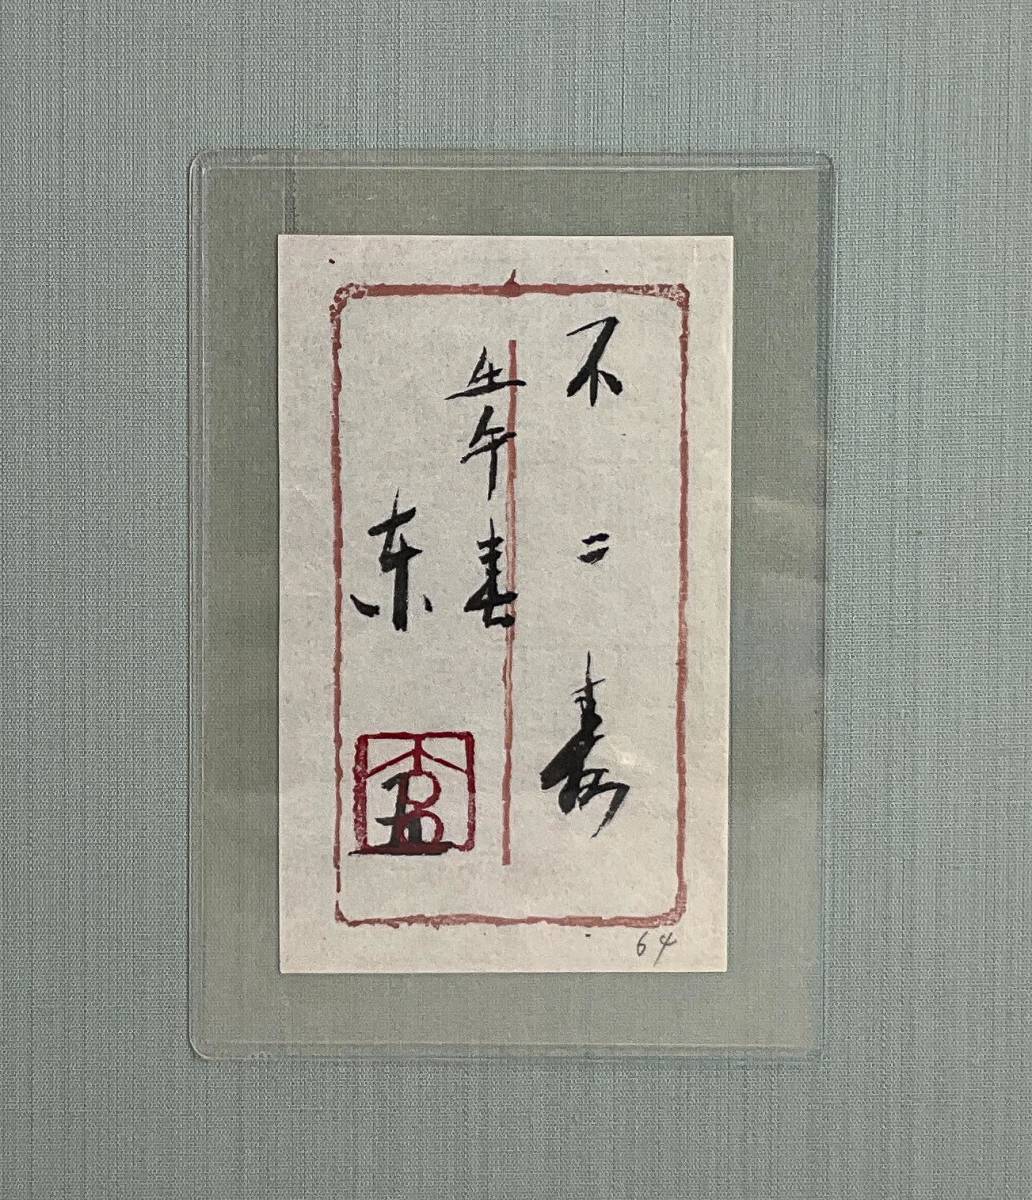 不二寿
壬午春
东
64